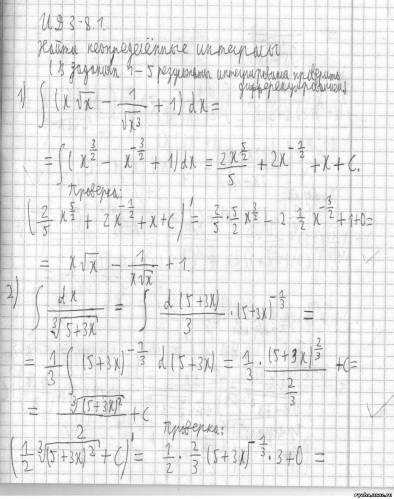 ИДЗ-8.1.
Найти неопределённые интегралы
(В заданиях 1-5 результаты интегрирования проверить
дифференцированием)
1) ∫ (x√x − 1/√x³ + 1) dx =
= ∫ (x^(3/2) − x^(−3/2) + 1) dx = 2x^(5/2)/5 + 2x^(−1/2) + x + C.
Проверка:
(2/5 x^(5/2) + 2x^(−1/2) + x + C)' = 2/5 · 5/2 x^(3/2) − 2 · 1/2 x^(−3/2) + 1 + 0 =
= x√x − 1/(x√x) + 1.
2) ∫ dx/∛(5+3x) = ∫ d(5+3x)/3 · (5+3x)^(−1/3) =
= 1/3 ∫ (5+3x)^(−1/3) d(5+3x) = 1/3 · (5+3x)^(2/3)/(2/3) + C =
= ∛((5+3x)²)/2 + C
Проверка:
(1/2 ∛((5+3x)²) + C)' = 1/2 · 2/3 (5+3x)^(−1/3) · 3 + 0 =